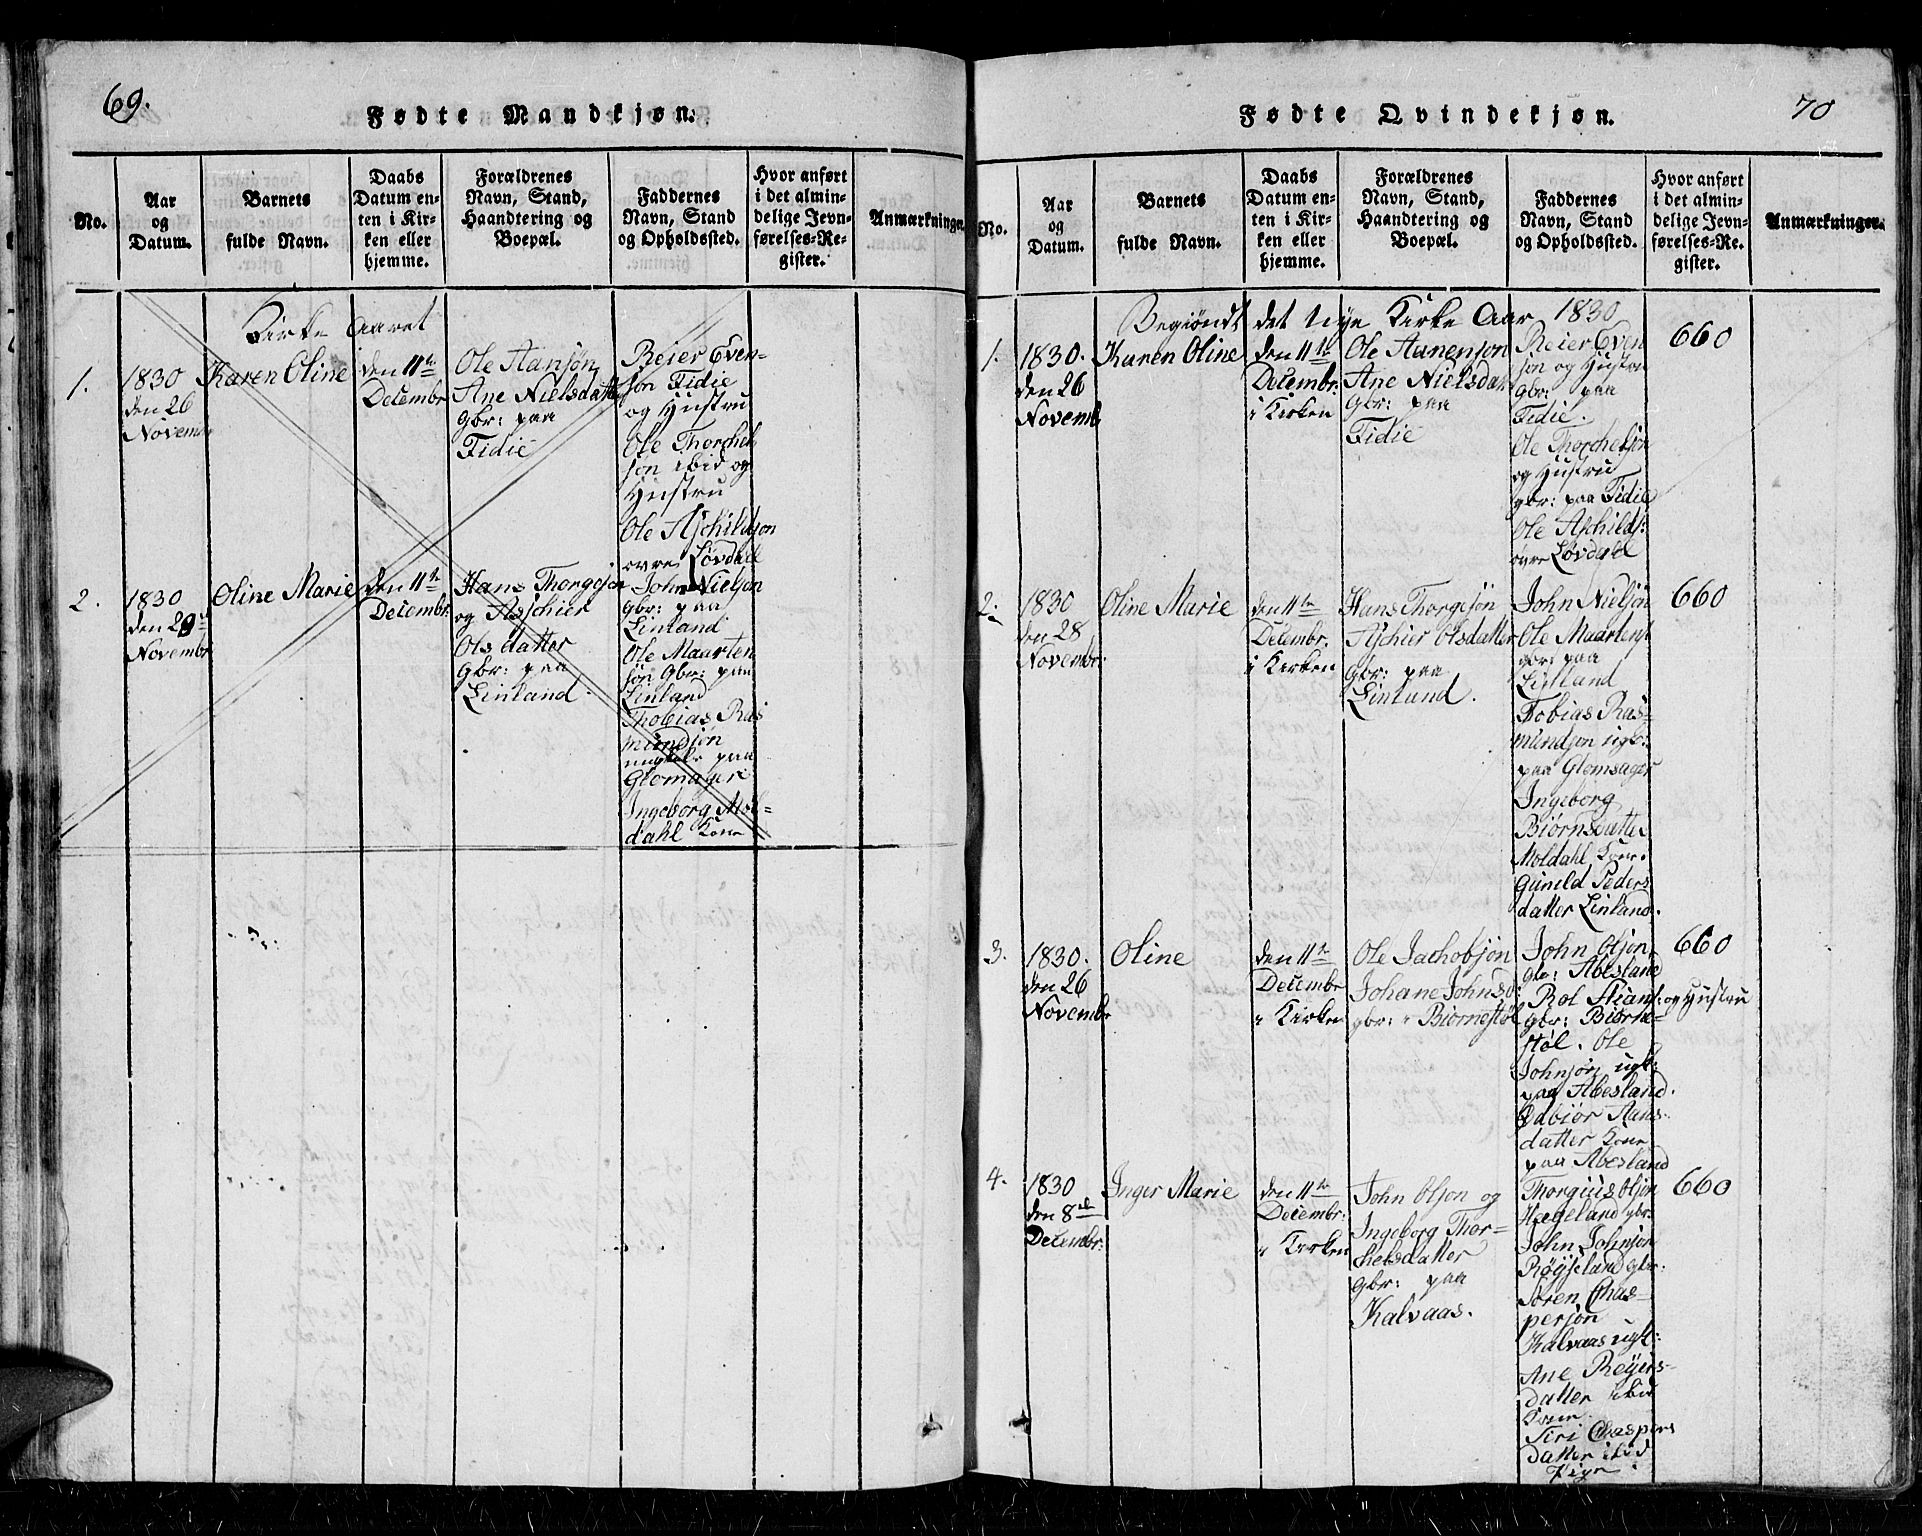 69.
Fødte Mandkjøn.
No.
Aar
og
Datum.
Barnets
fulde Navn.
Daabs
Datum en-
ten i Kir-
ken eller
hjemme.
Forældrenes
Navn, Stand,
Haandtering og
Boepæl.
Faddernes
Navn, Stand
og Opholdssted.
Hvor anført
i det almin-
delige Jevn-
førelses-Re-
gister.
Anmærkninger.
Kirke Aaret
1.
1830
den 26
Novembr
Karen Oline
den 11te
Decembr
Ole Aansøn
Ane Nielsdatter
Gbr: paa
Fidie
Reier Even-
søn Fidie
og Hustru
Ole Thorchel
søn ibid og
Hustru
Ole Aschildsøn
øvre Løvdal
2.
1830
den 29
Novembr
Oline Marie
den 11te
Decembr.
Hans Thorgesøn
og Aschier
Olsdatter
Gbr: paa
Linland.
John Nielsøn
gbr: paa
Linland
Ole Maarten
søn Gbr: paa
Linland
Thobias Ras
mundsøn
paa
Ingeborg Mol=
dahl Kone
70
Fødte Qvindekjøn.
No.
Aar
og
Datum.
Barnets
fulde Navn.
Daabs
Datum en-
ten i Kir-
ken eller
hjemme.
Forældrenes
Navn, Stand,
Haandtering og
Boepæl.
Faddernes
Navn, Stand
og Opholdssted.
Hvor anført
i det almin-
delige Jevn-
førelses-Re-
gister.
Anmærkninger.
Begiøndt det Nye Kirke Aar 1830
1.
1830.
den 26
Novemb
Karen Oline
den 11te
Decembr.
i Kirken
Ole Aanensøn
Ane Nielsdatr
Gbr: paa
Fidie
Reier Even
søn og Hustru
Gbr: paa
Fidie.
Ole Thorchelsøn
og Hustru
gbr: paa Fidie
Ole Aschilds:
øvre Løvdal
660
2.
1830
den 28
Novembr:
Oline Marie
den 11te
Decembr.
i Kirken
Hans Thorgesøn
Aschier Olsdatter
Gbr: paa
Linland.
John Nielsøn
Ole Maartens
gbr: paa
Linland
Tobias Ras=
mundsøn ugk:
paa Glomsager
Ingeborg
Biørnsdatter
Moldahl Kone.
Gunild Peders
datter Linland.
660
3.
1830.
den 26
Novembr
Oline
den 11te
Decembr
i Kirken
Ole Jachobsøn
Johane Johnsd
gbr: i Biørnestøl
John Olsøn
gbr: Abesland
Rol Stians: og Hustru
gbr: Biørne=
støl. Ole
Johnsøn ugk:
paa Abesland.
Odbiør Aans-
datter Kone
paa Abesland
660
4.
1830
den 8de
Decembr:
Inger Marie
den 11te
Decembr:
i Kirken
John Olsøn og
Ingeborg Thor=
chelsdatter
Gbr: paa
Kalvaas.
Thorgius Olsøn
Hægeland gbr:
John Johnsøn
Røyseland gbr:
Søren Chas=
persøn
Kalvaas ugk:
Ane Reyers-
datter ibid
Kone.
Siri Chaspers
datter ibid
Pige.
660